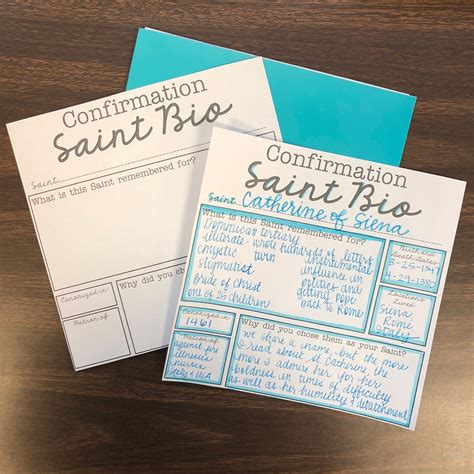 Confirmation
Saint Bio
Saint
What is this Saint remembered for?
Canonized in
Patron of
Why did you choose
Confirmation
Saint Bio
Saint Catherine of Siena
What is this Saint remembered for?
Dominican tertiary
illiterate - whole hundreds of letters
mystic
twin
stigmatist
bride of Christ
one of 25 children
instrumental
influence in
politics and
getting pope
back to Rome
Birth and
Death dates
3-25-1347
4-29-1380
Locations
Lived
Siena
Rome
Italy
Canonized in
1461
Patron of
against fire
illnesses
nurses
Italy &
Why did you choose them as your Saint?
we share a name, but the more
I read about St. Catherine, the
more I admire her for her
boldness in times of difficulty
as well as her humility & detatchment